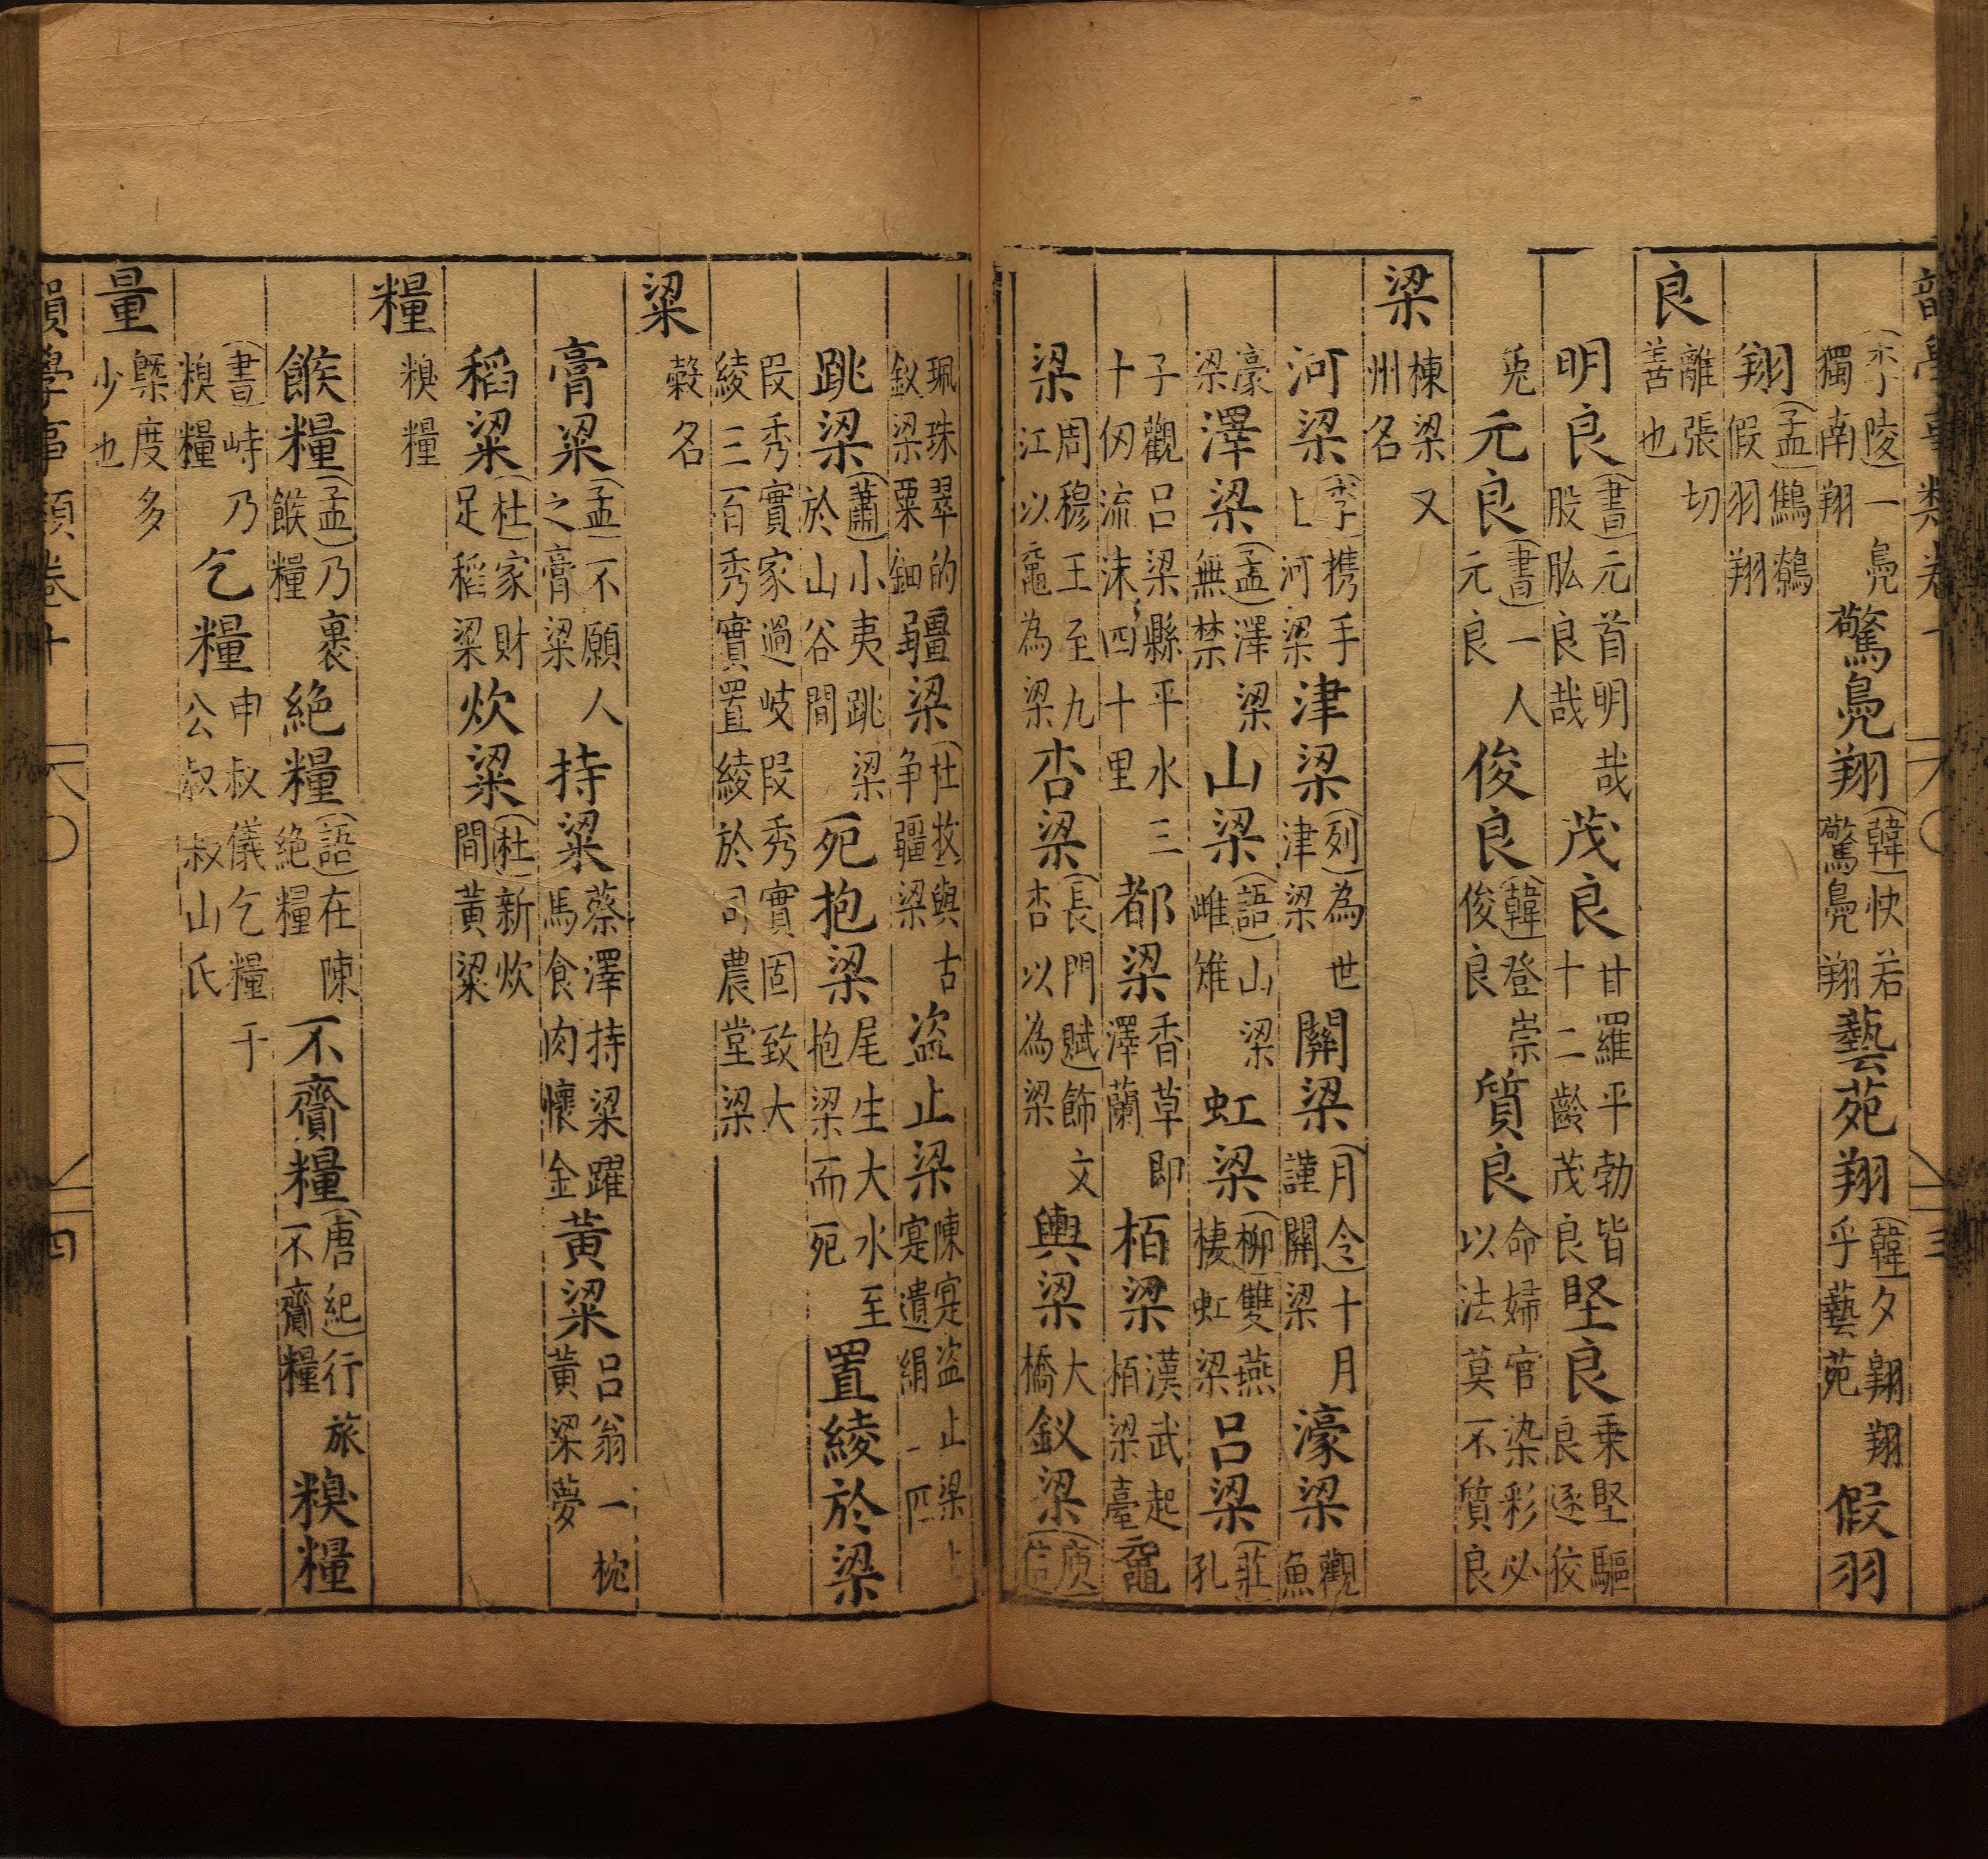 韻學事類卷十 三
(李陵)一鳧獨南翔 驚鳧翔(韓)快若驚鳧翔 藝苑翔(韓)夕翺翔乎藝苑 假羽
翔(孟)鷦鶴假羽翔
良 離張切善也
明良(書)元首明哉股肱良哉 茂良 甘羅平勃皆十二齡茂良 堅良 乗堅驅良逐狡
兎 元良(書)一人元良 俊良(韓)登崇俊良 質良 命婦官染彩必以法莫不質良
梁 棟梁又州名
河梁(李)携手上河梁 津梁(列)為世津梁 關梁(月令)十月謹關梁 濠梁 觀魚
濠梁 澤梁(孟)澤梁無禁 山梁(語)山梁雌雉 虹梁(柳)雙燕棲虹梁 呂梁(莊)孔
子觀呂梁縣平水三十仞流沫四十里 都梁 香草即澤蘭 栢梁 漢武起栢梁臺 黿
梁 周穆王至九江以黿為梁 杏梁(長門賦)飾文杏以為梁 輿梁 大橋 釵梁(庾信)
珮珠翠的釵梁粟鈿 彊梁(杜牧)與古争彊梁 盗止梁 陳寔盗止梁上寔遺絹二匹
跳梁(蕭)小夷跳梁於山谷間 死抱梁 尾生大水至抱梁而死 置綾於梁
段秀實家過岐段秀實固致大綾三百秀實置綾於司農堂梁
粱 榖名
膏粱(孟)不願人之膏粱 持粱 蔡澤持粱躍馬食肉懷金 黄粱 呂翁一枕黄粱夢
稻粱(杜)家財足稻粱 炊粱(杜)新炊間黄粱
糧 糗糧
餱糧(孟)乃裹餱糧 絶糧(語)在陳絶糧 不齎糧(唐紀)行旅不齎糧 糗糧
(書)峙乃糗糧 乞糧 申叔儀乞糧于公叔叔山氏
量 槩度多少也
韻學事類卷十 四